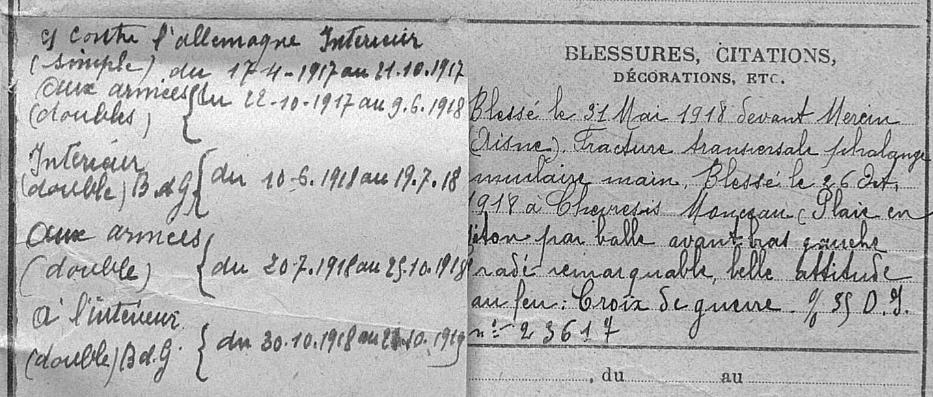 c) contre l'allemagne Interieur
(simple) du 17-4-1917 au 21.10.1917
aux armées du 22-10-1917 au 9.6.1918
(doubles)
Intérieur
(double) B.d.G du 10-6.1918 au 19.7.18
aux armées
(double) du 20-7.1918 au 25.10.1918
a l'intérieur
(double) B.d.G. du 30.10.1918 au .10.1919
BLESSURES, CITATIONS,
DÉCORATIONS, ETC.
Blessé le 31 Mai 1918 devant Mercin
(Aisne). Fracture transversale phalange
main. Blessé le 26 Oct.
1918 à Chevresis Monceau (Plaie en
par balle avant bras gauche
remarquable, belle attitude
au feu: Croix de guerre. 35 D.I.
n° 23617
, du au